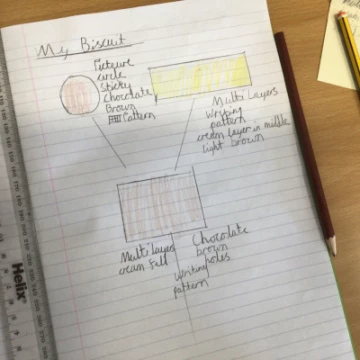 My Biscuit
Picture
circle
Sticky
Chocolate
Brown
Pattern
Multi Layers
Writing
pattern
cream layer in middle
light brown
Multi layer
cream full
Chocolate
brown
holes
Writing
pattern
Helix